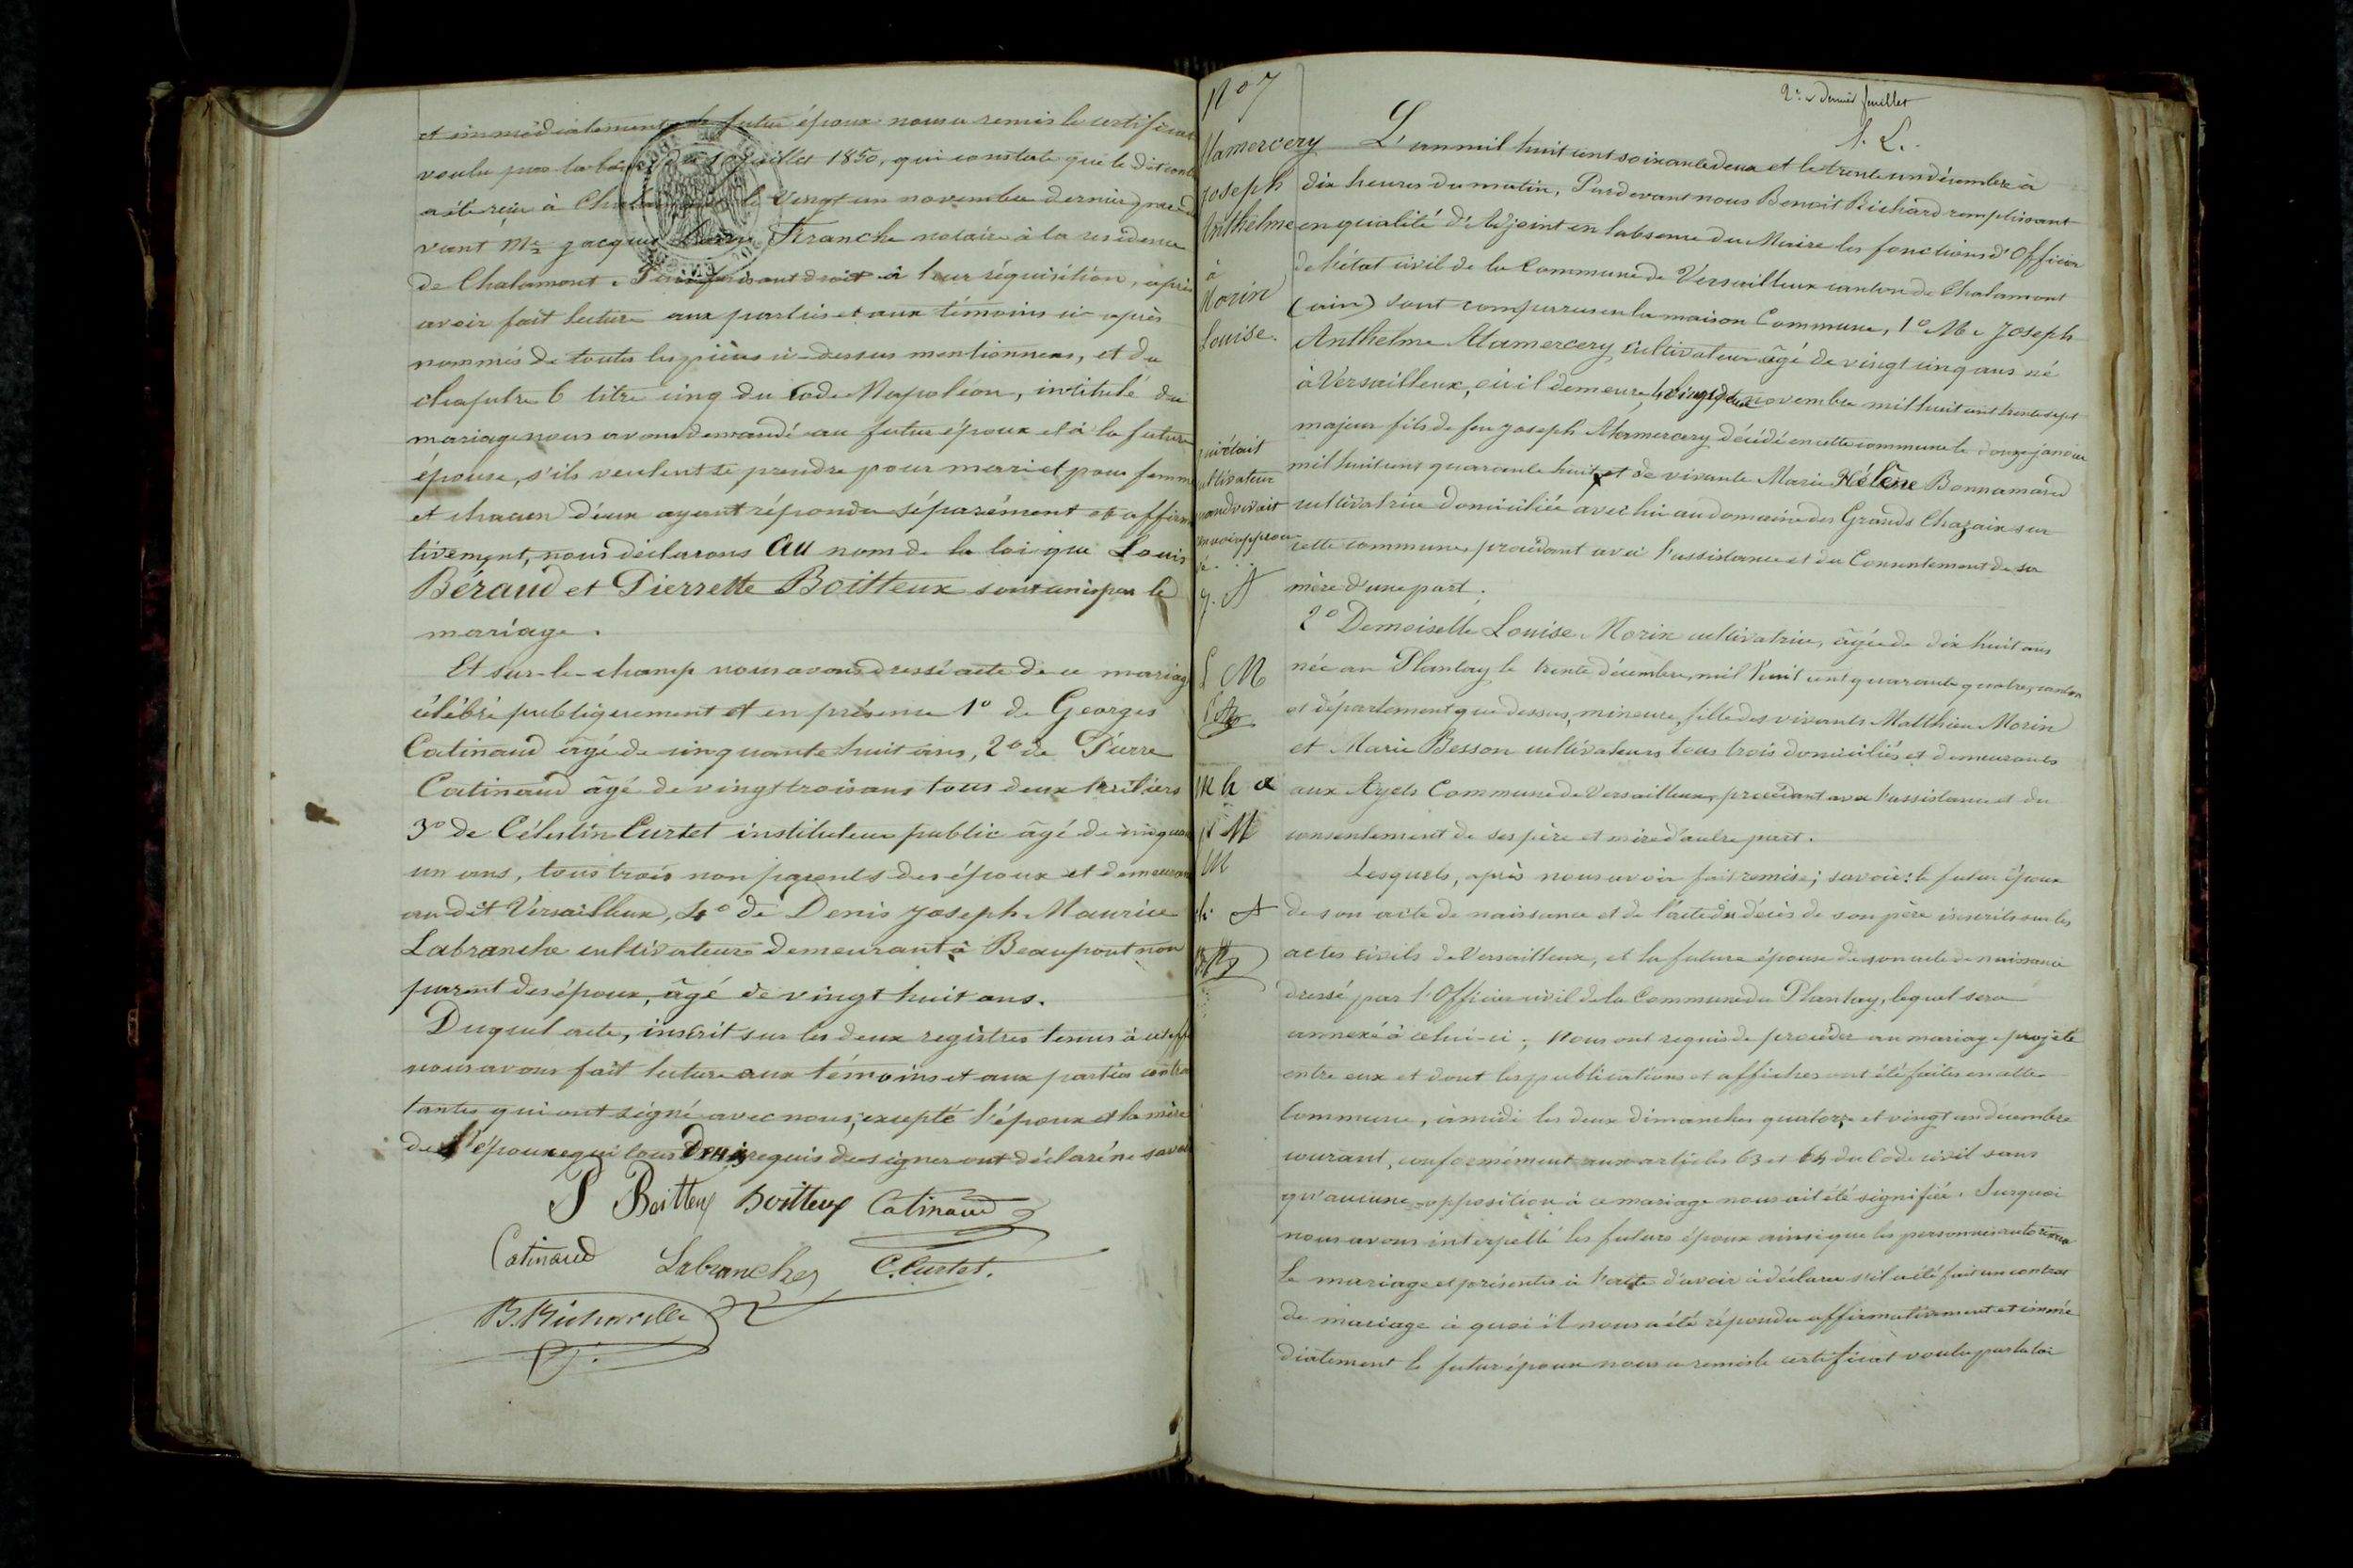 et immédiatement le futur époux nous a remis le certificat
voulu par la loi du 10 juillet 1850, qui constate que le dit cont
a été reçu à le vingt un novembre dernier par de
vant Me Jacques Franche notaire à la résidence
de Chalamont. faisant droit à leur réquisition, après
avoir fait lecture aux parties et aux témoins ci-après
nommés de toutes les pièces ci-dessus mentionnées, et du
chapitre 6 titre cinq du Code Napoléon, intitulé du
mariage nous avons demandé au futur époux et à la future
épouse, s'ils veulent se prendre pour mari et pour femme
et chacun d'eux ayant répondu séparément et affirma
tivement, nous déclarons au nom de la loi que Louis
Béraud et Pierrette Boitteux sont unis par le
mariage.
Et sur-le-champ nous avons dressé acte de ce mariage
célébré publiquement et en présence 1° de Georges
Catinaud âgé de cinquante huit ans, 2° de Pierre
Catinaud âgé de vingt trois ans tous deux
3° de Célestin Curtet instituteur public âgé de cinquante
un ans, tous trois non parents des époux et demeurant
au dit Versailleux, 4° de Denis Joseph Maurice
Labranche cultivateur demeurant à Beaupont non
parent des époux, âgé de vingt huit ans.
Duquel acte, inscrit sur les deux registres tenus à cet effet
nous avons fait lecture aux témoins et aux parties contrac
tantes qui ont signé avec nous, excepté l'époux et la mère
de l'épouse qui tous deux requis de signer ont déclaré ne savoir
P Boitteux Boitteux Catinaud
Catinaud Labranche C. Curtet.
B. Richard
N° 7
Mamercery
Joseph
Anthelme
à
Morin
Louise.
qui était
cultivateur
quand vivait
renvoi approu
vé
J. A
L M
m h
M
M
2e et dernier feuillet
L'an mil huit cent soixante deux et le trente un décembre à
dix heures du matin, Pardevant nous Benoit Richard remplissant
en qualité d'Adjoint en l'absence du Maire les fonctions d'Officier
de l'état civil de la Commune de Versailleux canton de Chalamont
(ain) sont comparus en la maison Commune, 1° Mr Joseph
Anthelme Mamercery cultivateur âgé de vingt cinq ans né
à Versailleux, où il demeure, le vingt deux novembre mil huit cent trente sept
majeur fils de feu Joseph Mamercery décédé en cette commune le douze janvier
mil huit cent quarante huit, et de vivante Marie Hélène Bonnamard
cultivatrice domiciliée avec lui au domaine des Grands Chazaix sur
cette commune, procédant avec l'assistance et du Consentement de sa
mère d'une part.
2° Demoiselle Louise Morin cultivatrice, âgée de dix huit ans
née au Plantay le trente décembre, mil huit cent quarante quatre, canton
et département que dessus, mineure, fille des vivants Matthieu Morin
et Marie Besson cultivateurs tous trois domiciliés et demeurants
aux Ayets Commune de Versailleux, procédant avec l'assistance et du
consentement de ses père et mère d'autre part.
Lesquels, après nous avoir fait remise; savoir: le futur époux
de son acte de naissance et de l'acte du décès de son père inscrits sur les
actes civils de Versailleux, et la future épouse de son acte de naissance
dressé par l'Officier civil de la Commune du Plantay, lequel sera
annexé à celui-ci; Nous ont requis de procéder au mariage projeté
entre eux et dont les publications et affiches ont été faites en cette
Commune, à midi les deux dimanches quatorze et vingt un décembre
courant, conformément aux articles 63 et 64 du Code civil sans
qu'aucune opposition à ce mariage nous ait été signifiée. Surquoi
nous avons interpellé les futurs époux ainsi que les personnes autorisant
le mariage et présentes à l'acte d'avoir à déclarer s'il a été fait un contrat
de mariage à quoi il nous a été répondu affirmativement et immé
diatement le futur époux nous a remis le certificat voulu par la loi